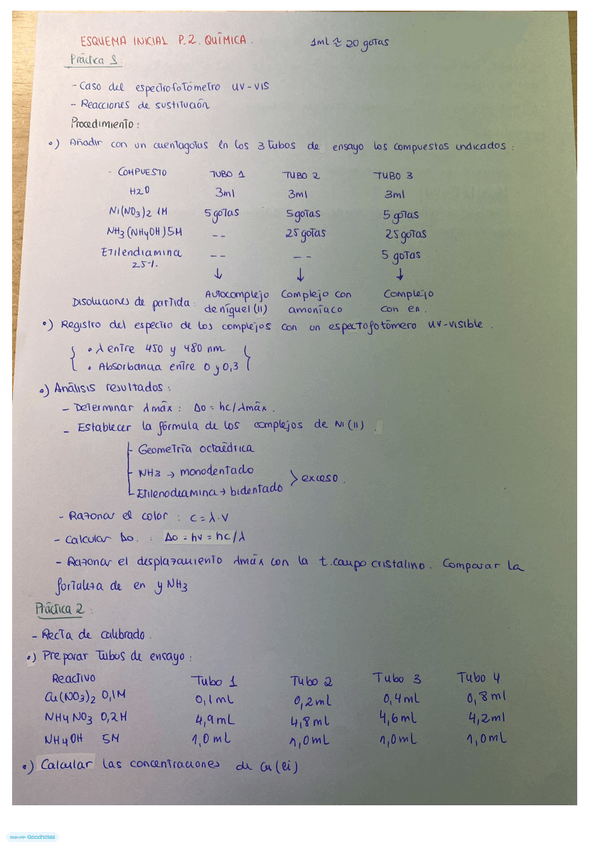 ESQUEMA INICIAL P.2. QUÍMICA. 1ml ≈ 20 gotas
Práctica 1:
- Caso del espectrofotómetro UV-VIS
- Reacciones de sustitución
Procedimiento:
•) Añadir con un cuentagotas en los 3 tubos de ensayo los compuestos indicados:
· COMPUESTO TUBO 1 TUBO 2 TUBO 3
H2O 3ml 3ml 3ml
Ni(NO3)2 1M 5 gotas 5 gotas 5 gotas
NH3 (NH4OH) 5M -- 25 gotas 25 gotas
Etilendiamina -- -- 5 gotas
25%. ↓ ↓ ↓
Disoluciones de partida: Autocomplejo Complejo con Complejo
de níquel (II) amoníaco con en.
•) Registro del espectro de los complejos con un espectofotómero UV-visible.
{ • λ entre 450 y 480 nm. }
{ • Absorbancia entre 0 y 0,3 }
•) Análisis resultados:
- Determinar λmáx: Δo = hc/λmáx.
- Establecer la fórmula de los complejos de Ni (II).
- Geometría octaédrica
- NH3 → monodentado
> exceso.
- Etilenodiamina → bidentado
- Razonar el color: c = λ·V
- Calcular Δo.: Δo = hv = hc/λ
- Razonar el desplazamiento λmáx con la t.campo cristalino. Comparar la
fortaleza de en y NH3
Práctica 2:
- Recta de calibrado.
•) Preparar Tubos de ensayo:
Reactivo Tubo 1 Tubo 2 Tubo 3 Tubo 4
Cu(NO3)2 0,1M 0,1mL 0,2mL 0,4mL 0,8ml
NH4NO3 0,2M 4,9mL 4,8mL 4,6mL 4,2ml
NH4OH 5M 1,0mL 1,0mL 1,0mL 1,0mL
•) Calcular las concentraciones de Cu (Ci)
Goodnotes